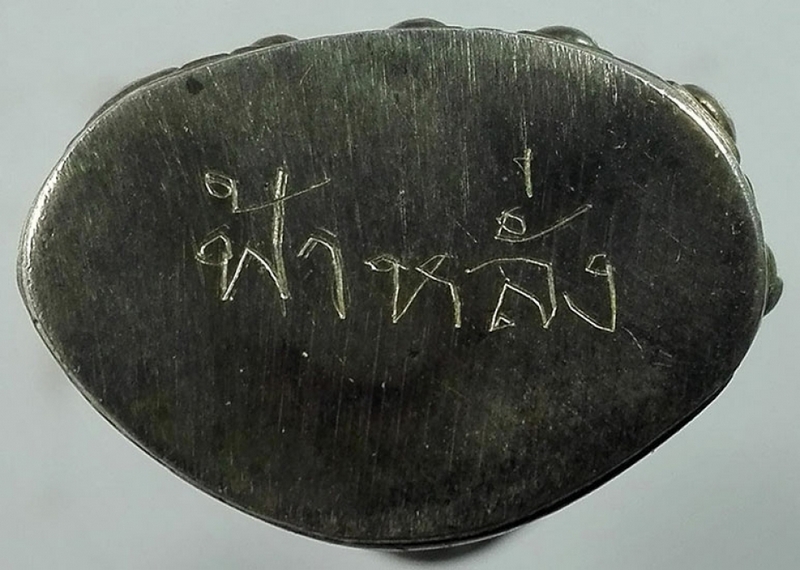 ฟ้าหลั่ง